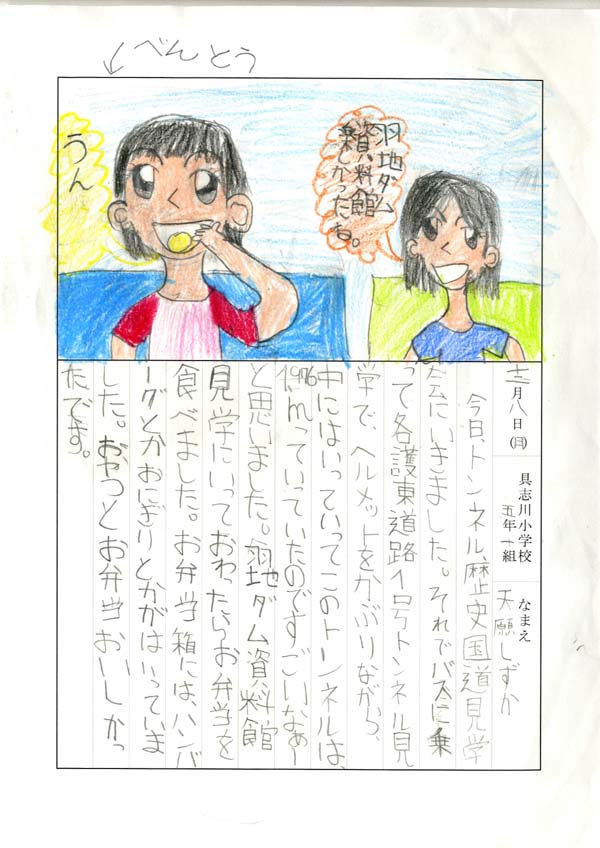 べんとう
うん
羽地ダム
資料館
楽しかったね。
十二月八日(日)
具志川小学校
五年一組
なまえ
天願しずか
今日、トンネル、歴史国道見学
会にいきました。それでバスに乗
って各護東道路1号トンネル見
学で、ヘルメットをかぶりながら、
中にはいっていってこのトンネルは、
1976mっていっていたのですごいなぁー
と思いました。羽地ダム資料館
見学にいっておわったらお弁当を
食べました。お弁当箱には、ハンバ
ーグとかおにぎりとかがはいっていま
した。おやつとお弁当おいしかっ
たです。